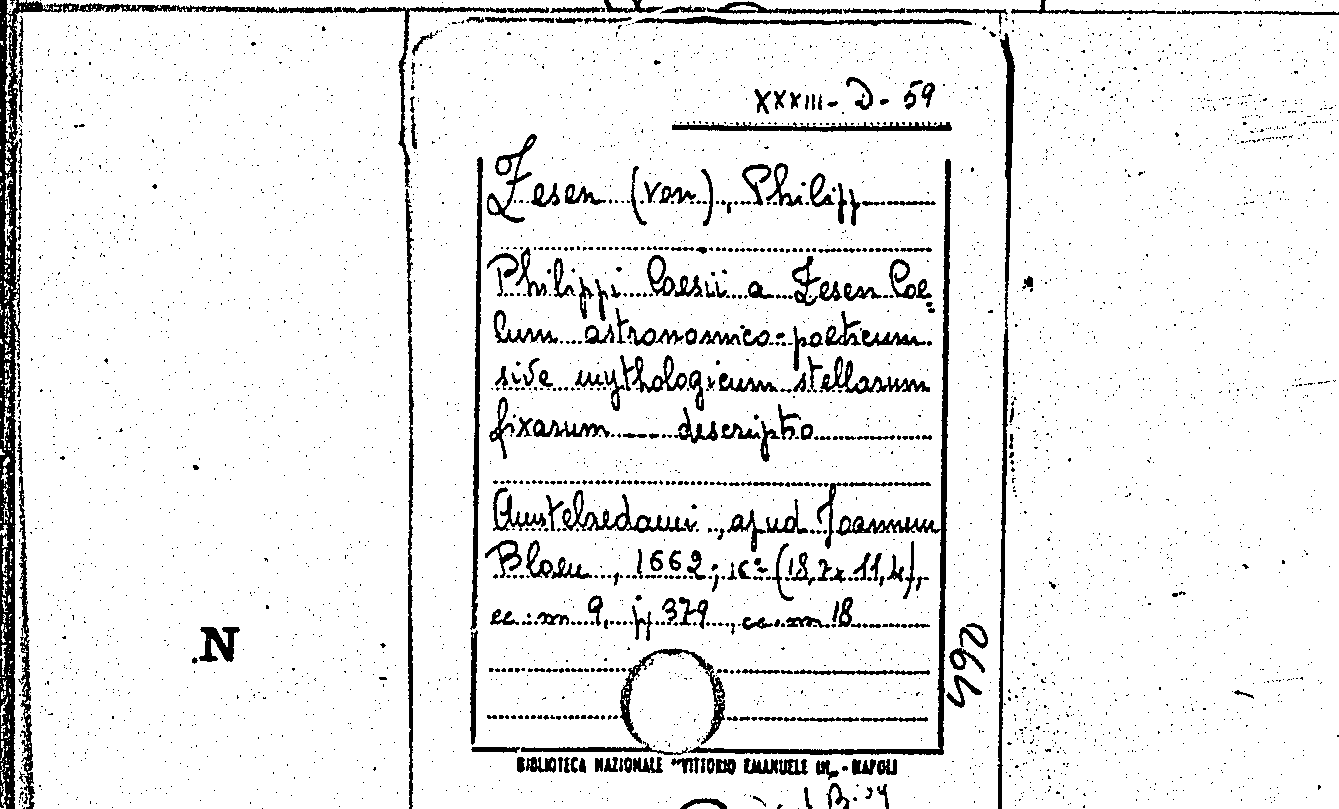 XXXIII - D - 59
Zesen (von), Philipp
Philippi Caesii a Zesen Coe=
lum astronomico-poeticum
sive mythologicum stellarum
fixarum --- descriptio
Amstelaedami, apud Joannem
Blaeu, 1662; 16º (18,7x11,4),
cc. nn 9, pp 379, cc. nn 18
N
490
BIBLIOTECA NAZIONALE "VITTORIO EMANUELE III" - NAPOLI